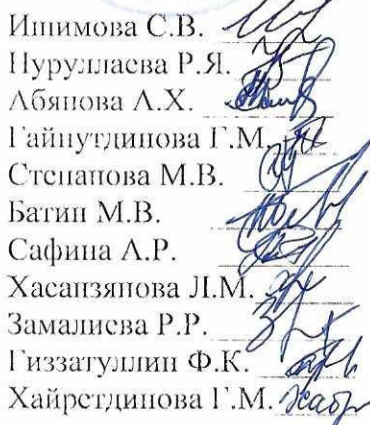 Ишимова С.В.
Нуруллаева Р.Я.
Абянова А.Х.
Гайнутдинова Г.М.
Степанова М.В.
Батин М.В.
Сафина А.Р.
Хасанзянова Л.М.
Замалиева Р.Р.
Гиззатуллин Ф.К.
Хайретдинова Г.М.